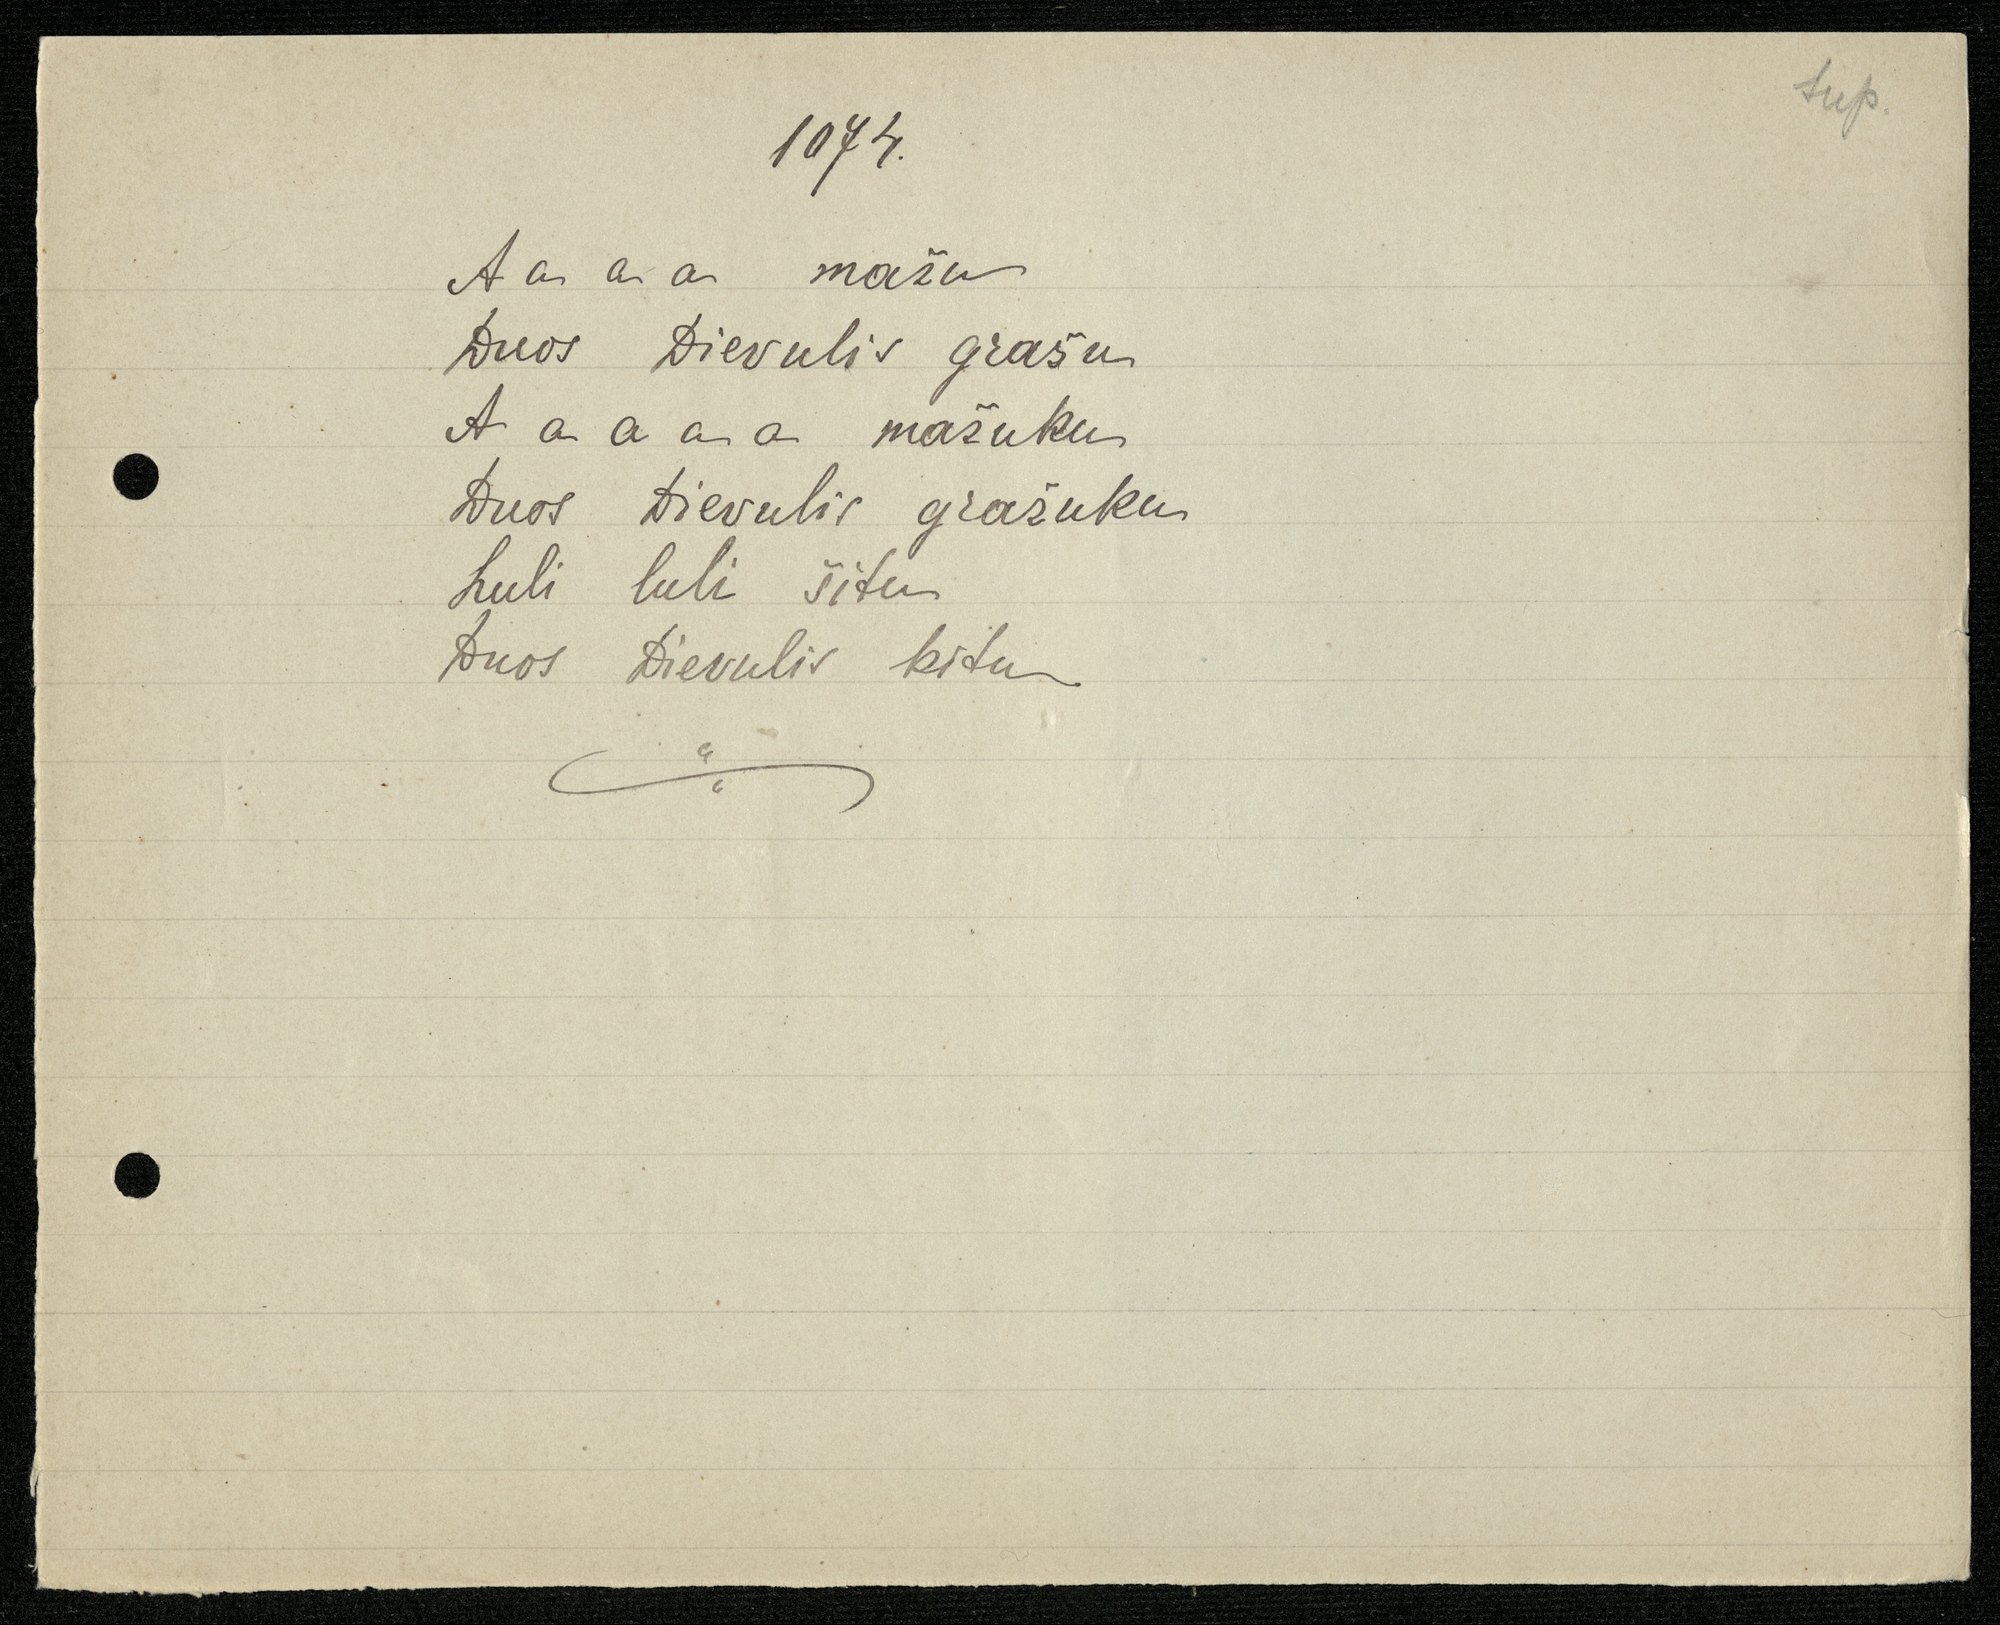 sup.
1074.
A a a a mažu
Duos Dievulis gražu
A a a a a mažuku
Duos Dievulis gražuku
Luli luli šitu
Duos Dievulis kitu